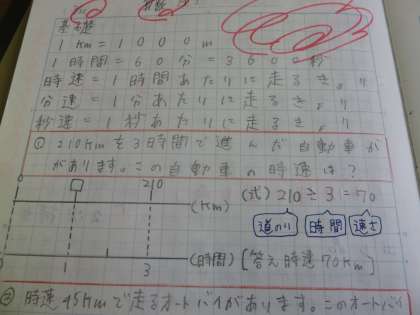 基礎
1Km=1000m
1時間=60分=3600秒
時速=1時間あたりに走るきょり
分速=1分あたりに走るきょり
秒速=1秒あたりに走るきょり
① 210Kmを3時間で進んだ自動車が
があります。この自動車の時速は?
0 □ 210 (Km)
(式) 210÷3=70
道のり 時間 速さ
0 1 3 (時間)
[答え 時速70Km]
② 時速45Kmで走るオートバイがあります。このオートバイ